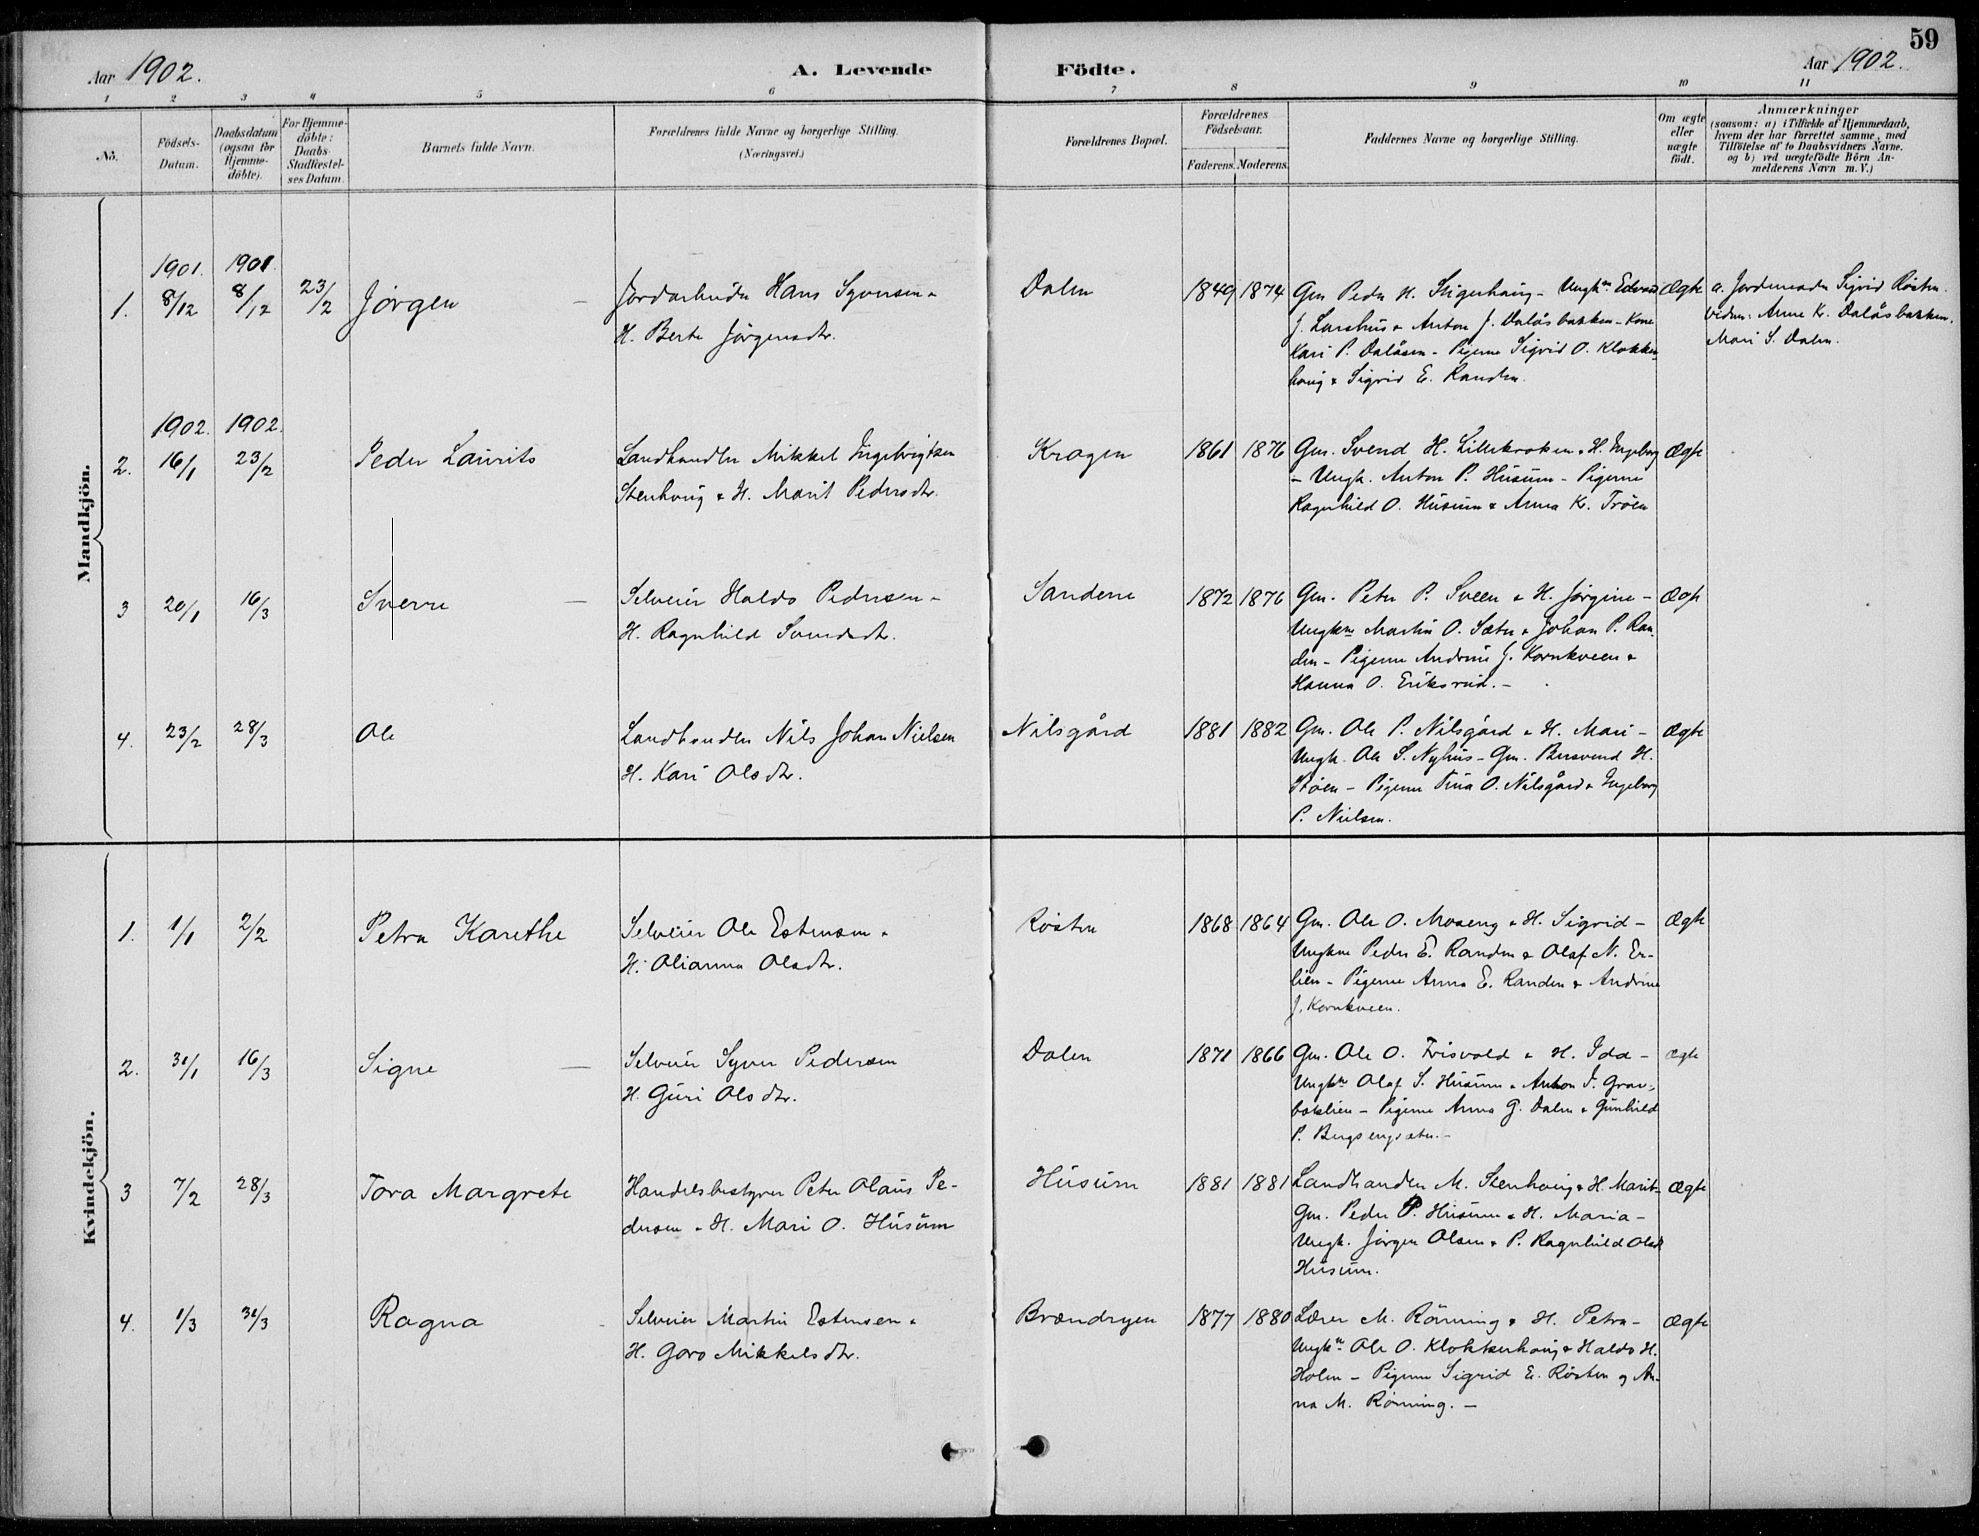 59
Aar 1902.
A. Levende Födte.
Aar 1902.
1 2 3 4 5 6 7 8 9 10 11
No.
Födsels-
Datum.
Daabsdatum
(ogsaa for
Hjemme-
döbte).
For Hjemme-
döbte:
Daabs-
Stadfæstel-
ses Datum.
Barnets fulde Navn.
Forældrenes fulde Navne og borgerlige Stilling.
(Næringsvei.)
Forældrenes Bopæl.
Forældrenes
Födselsaar.
Faderens. Moderens.
Faddernes Navne og borgerlige Stilling.
Om ægte
eller
uægte
födt.
Anmærkninger
(saasom: a) i Tilfælde af Hjemmedaab,
hvem der har forrettet samme, med
Tilföielse af to Daabsvidners Navne.
og b) ved uægtefödte Börn An-
melderens Navn m.V.)
Mandkjön.
1901. 1901.
1. 8/12 8/12 23/2 Jörgen –
Jordarbeider Hans Syversen &
H. Berte Jörgensdtr.
Dalen
1849 1874
Gm Peder H. Stigerhaug – Ungkm Edvard
J. Larshus & Anton J. Dalåsbakken – Kone
Kari P. Dalåsen – Pigerne Sigrid O. Klokker-
haug & Sigrid E. Randen.
Ægte
a. Jordemoder Sigrid Rösten.
vidner: Anne K. Dalåsbakken.
Mari S. Dalen.
1902. 1902.
2. 16/1 23/2 Peder Laurits
Landhandler Mikkel Ingebrigtsen
Stenhaug & H. Marit Pedersdtr.
Kragen
1861 1876
Gm. Svend H. Lillekroken & H. Ingeborg
– Ungk. Anton P. Husum – Pigerne
Ragnhild O. Husum & Anna K. Tröen
Ægte
3 20/1 16/3 Sverre –
Selveier Haldo Pedersen –
H. Ragnhild Svendsdtr.
Sandene
1872 1876
Gm. Peter P. Sveen & H. Jörgine –
Ungkm Martin O. Sæter & Johan P. Ran-
den – Pigerne Andrine J. Kornkveen &
Hanna O. Eriksrud. –
Ægte
4. 23/2 28/3 Ole
Landhandler Nils Johan Nielsen
H. Kari Olsdtr.
Nilsgård
1881 1882
Gm. Ole P. Nilsgård & H. Mari –
Ungk. Ole S. Nyhus – Gm. Bersvend H.
– Pigerne Tina O. Nilsgård & Ingeborg
P. Nielsen.
Ægte
Kvindekjön.
1. 1/1 2/2 Petra Karethe
Selveier Ole Estensen &
H. Olianna Olsdtr.
Rösten
1868 1864
Gm. Ole O. Moseng & H. Sigrid –
Ungkm Peder E. Randen & Olaf N. Er-
lien – Pigerne Anna E. Randen & Andrine
J. Kornkveen.
Ægte
2. 31/1 16/3 Signe –
Selveier Syver Pedersen
H. Guri Olsdtr.
Dalen
1871 1866
Gm. Ole O. Trisvold & H. Ida –
Ungkm Olaf S. Husum & Anton J. Grav-
baklien – Pigerne Anna G. Dalen & Gunhild
P. Bergsengsæter. –
Ægte
3 7/2 28/3 Tora Margrete
Handelsbestyrer Peter Olaus Pe-
dersen & H. Mari O. Husum
Husum
1881 1881
Landhandler M. Stenhaug & H. Marit –
Gm. Peder P. Husum & H. Maria –
Ungk. Jörgen Olsen & P. Ragnhild Olsdt
Husum.
Ægte
4. 1/3 31/3 Ragna
Selveier Martin Estensen &
H. Goro Mikkelsdtr.
Brændryen
1877 1880
Lærer M. Rönning & H. Petra –
Ungkm Ole O. Klokkerhaug & Haldo H.
Holen – Pigerne Sigrid E. Rösten og An-
na M. Rönning. –
Ægte